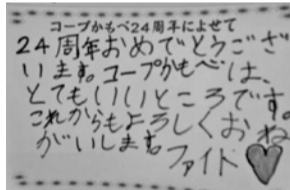 コープかもべ24周年によせて
24周年おめでとうござ
います。コープかもべは、
とてもいいところです。
これからもよろしくおね
がいします。
ファイト